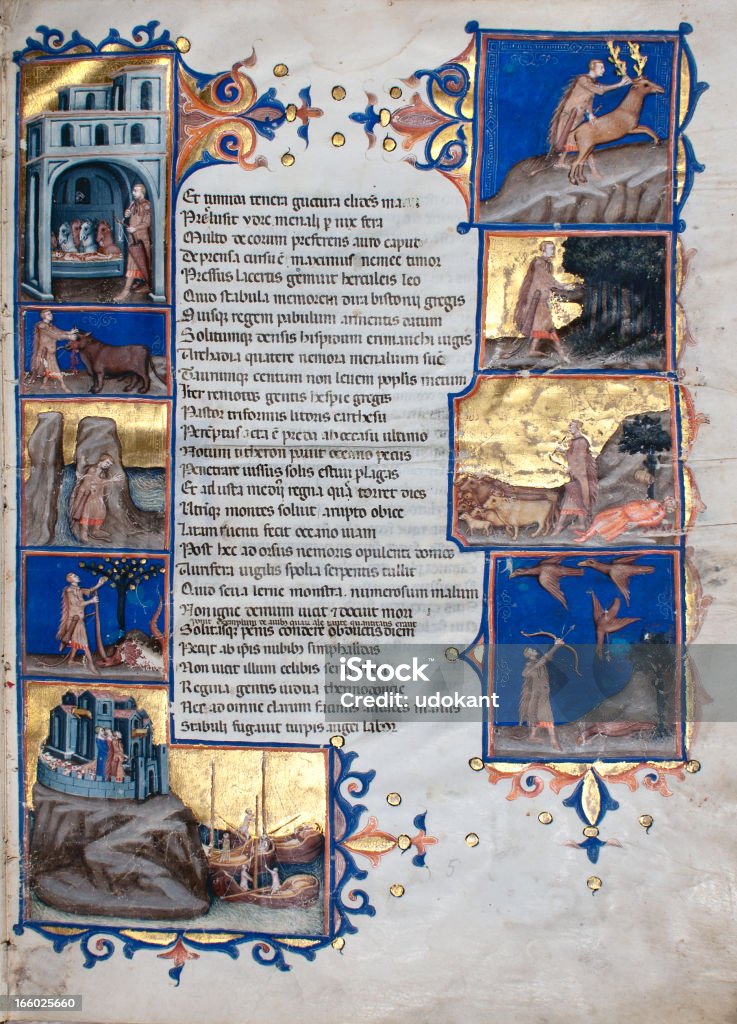 Et tumidi tenera guttura elides manu
Prelusit ydre
Multo decorum preferens auro caput
Deprensa cursu est maximus nemee timor
Pressus lacertis gemuit herculeis leo
Quid stabula memorem dira bistonii gregis
Suisque regem pabulum armentis datum
Solitumque densis hispidum erimanthi iugis
Archadia quatere nemora menalium suem
Taurumque centum non leuem populis metum
Iter remotos gentis hesperie greges
Pastor triformis litoris carthesii
Peremptus acta est preda ab occasu ultimo
Notum citheron pauit oceano pecus
Penetrare iussus solis estiui plagas
Et adusta medius regna que torret dies
Utrinque montes soluit abrupto obice
Latam ruenti fecit oceano uiam
Post hec adorsus nemoris opulenti domos
Aurifera uigilis spolia serpentis tulit
Quid seua lerne monstra numerosum malum
Non igne demum uicit et docuit mori
Solitasque penis condere obductis diem
Petit ab ipsis nubibus stimphalidas
Non uicit illum celibis se
Regina gentis uidua thermodoncie
Nec ad omne clarum facinus audaces manus
Stabuli fugauit turpis augei labor
iStock
Credit: udokant
5
166025660